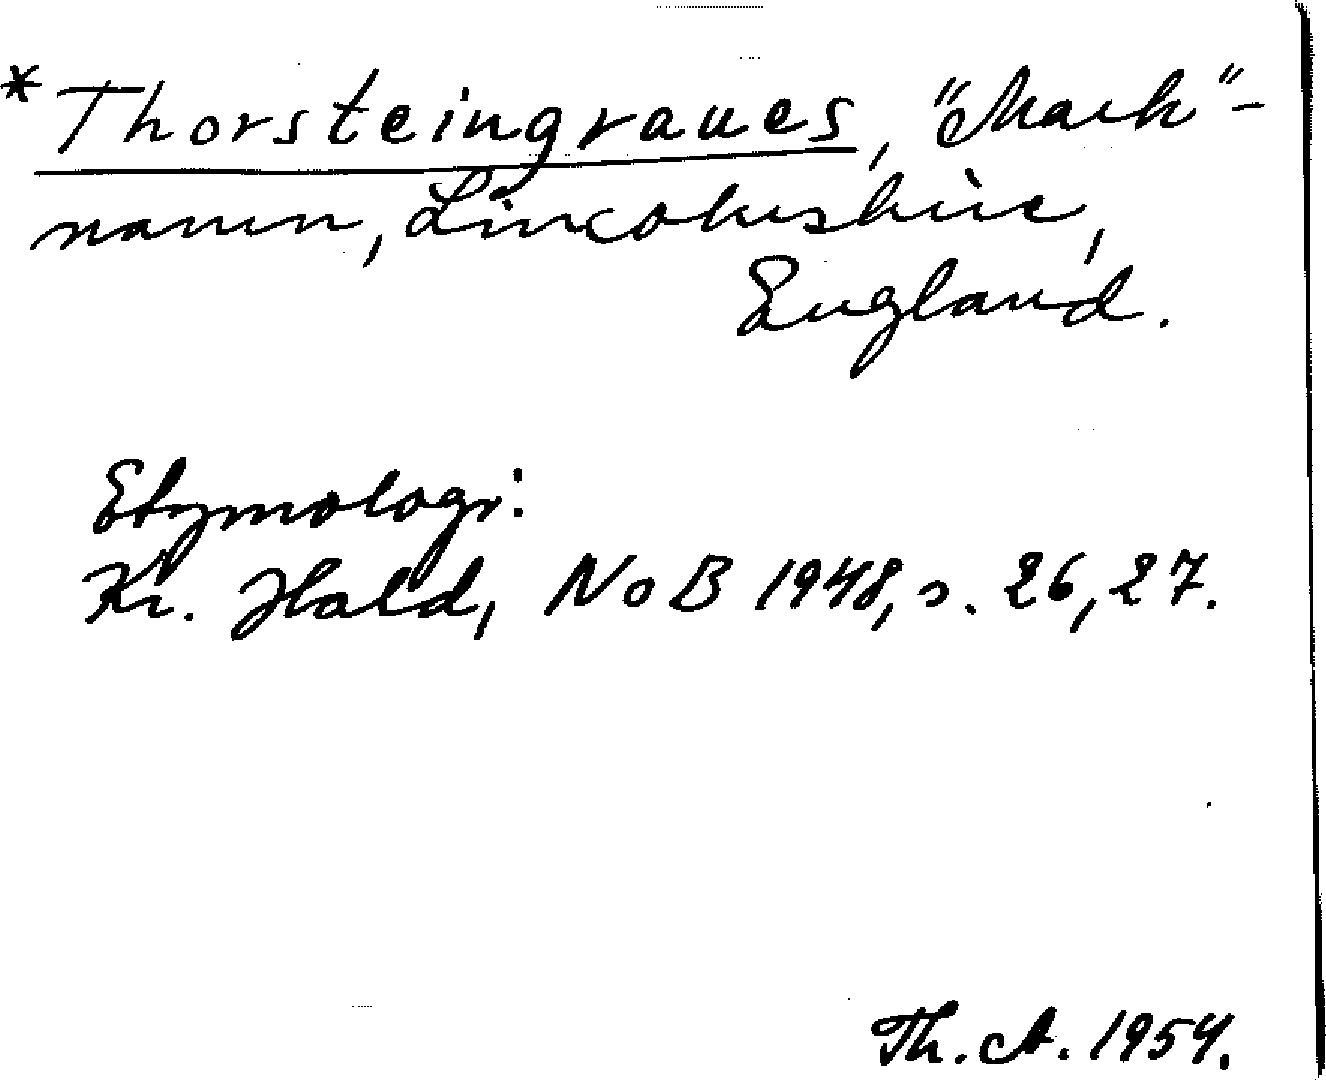 * Thorsteingraues, "Mark"-
namn, Lincolnshire,
England.
Etymologi:
Kr. Hald, NoB 1948, s. 26, 27.
Th. A. 1954.